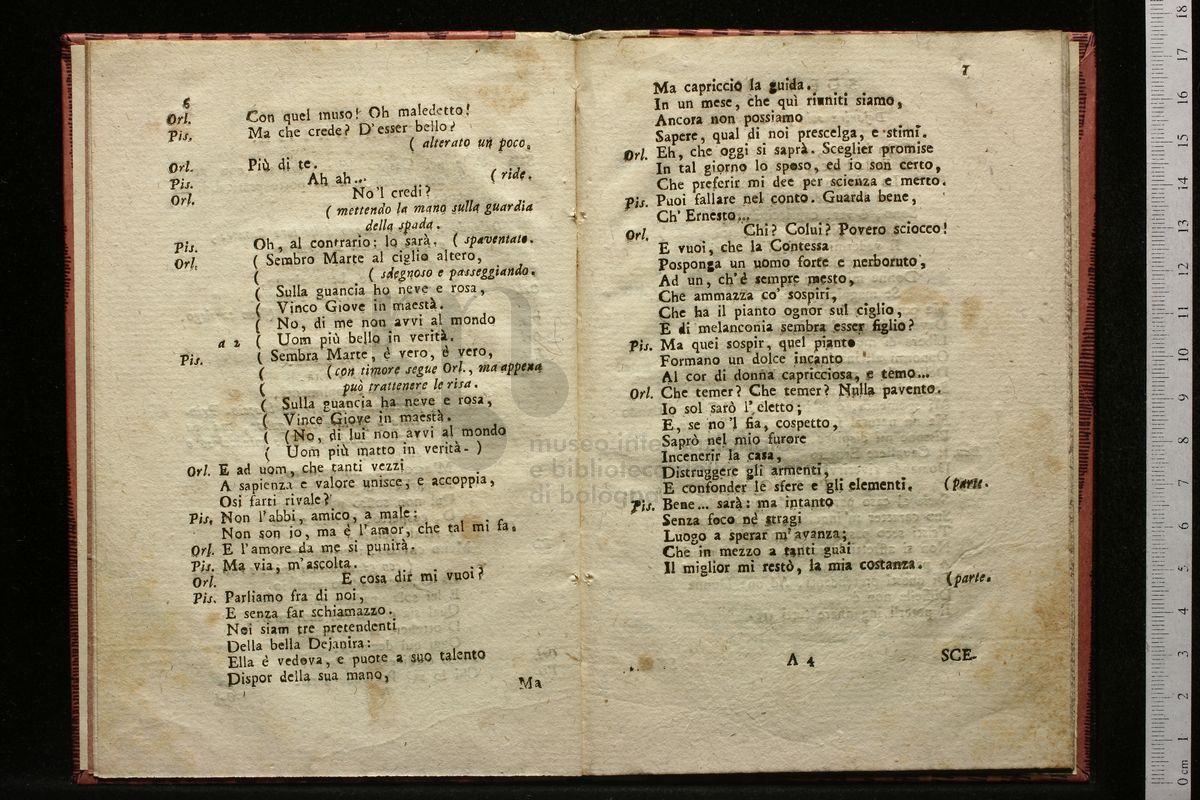 6
Orl. Con quel muso! Oh maledetto!
Pis. Ma che crede? D'esser bello?
( alterato un poco.
Orl. Più di te.
Pis. Ah ah... ( ride.
Orl. No'l credi?
( mettendo la mano sulla guardia
della spada.
Pis. Oh, al contrario: lo sarà. ( spaventato.
Orl. ( Sembro Marte al ciglio altero,
( ( sdegnoso e passeggiando.
( Sulla guancia ho neve e rosa,
( Vinco Giove in maestà.
( No, di me non avvi al mondo
a 2 ( Uom più bello in verità.
Pis. ( Sembra Marte, è vero, è vero,
( (con timore segue Orl., ma appena
( può trattenere le risa.
( Sulla guancia ha neve e rosa,
( Vince Giove in maestà.
( (No, di lui non avvi al mondo
( Uom più matto in verità. )
Orl. E ad uom, che tanti vezzi
A sapienza e valore unisce, e accoppia,
Osi farti rivale?
Pis. Non l'abbi, amico, a male:
Non son io, ma è l'amor, che tal mi fa.
Orl. E l'amore da me si punirà.
Pis. Ma via, m'ascolta.
Orl. E cosa dir mi vuoi?
Pis. Parliamo fra di noi,
E senza far schiamazzo.
Noi siam tre pretendenti
Della bella Dejanira:
Ella è vedova, e puote a suo talento
Dispor della sua mano,
Ma
7
Ma capriccio la guida.
In un mese, che quì riuniti siamo,
Ancora non possiamo
Sapere, qual di noi prescelga, e stimi.
Orl. Eh, che oggi si saprà. Sceglier promise
In tal giorno lo sposo, ed io son certo,
Che preferir mi dee per scienza e merto.
Pis. Puoi fallare nel conto. Guarda bene,
Ch' Ernesto...
Orl. Chi? Colui? Povero sciocco!
E vuoi, che la Contessa
Posponga un uomo forte e nerboruto,
Ad un, ch'è sempre mesto,
Che ammazza co' sospiri,
Che ha il pianto ognor sul ciglio,
E di melanconia sembra esser figlio?
Pis. Ma quei sospir, quel pianto
Formano un dolce incanto
Al cor di donna capricciosa, e temo...
Orl. Che temer? Che temer? Nulla pavento.
Io sol sarò l'eletto;
E, se no'l fia, cospetto,
Saprò nel mio furore
Incenerir la casa,
Distruggere gli armenti,
E confonder le sfere e gli elementi. (parte.
Pis. Bene... sarà: ma intanto
Senza foco nè stragi
Luogo a sperar m'avanza;
Che in mezzo a tanti guai
Il miglior mi restò, la mia costanza.
(parte.
A 4
SCE-
museo inte
e biblioteca
di bologna
0 cm 1 2 3 4 5 6 7 8 9 10 11 12 13 14 15 16 17 18